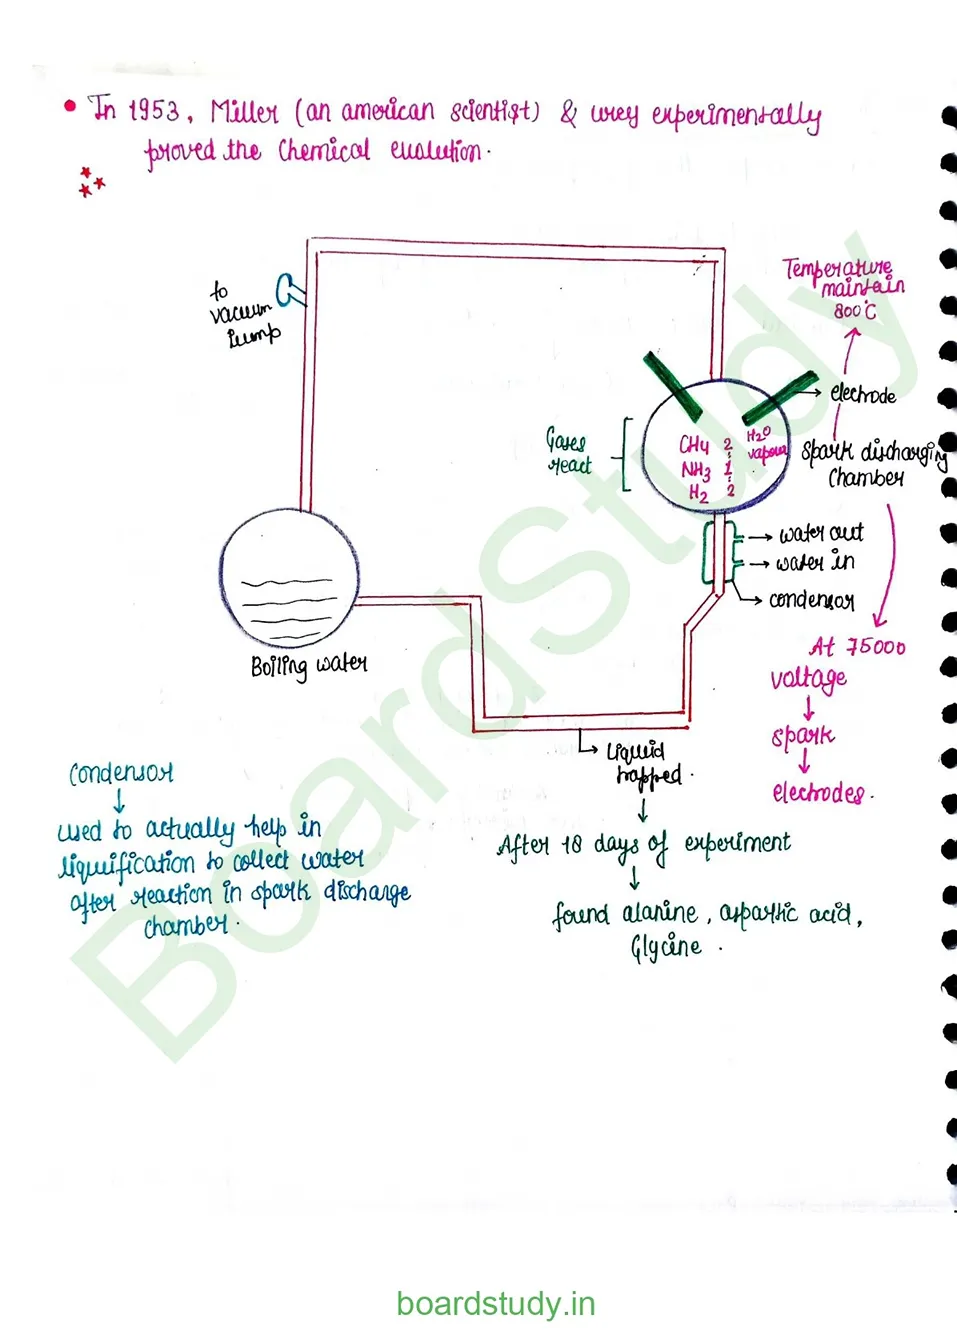 • In 1953, Miller (an american scientist) & urey experimentally
proved the Chemical evalution.
to
vacuum
pump
Temperature
maintain
800°C
electrode
Gases
react
CH4 2 H2O
: vapour
NH3 1
:
H2 2
spark discharging
Chamber
water out
water in
condensor
Boiling water
At 75000
voltage
spark
electrodes.
liquid
trapped.
Condensor
used to actually help in
liquification to collect water
after reaction in spark discharge
chamber.
After 18 days of experiment
found alanine, aspartic acid,
Glycine.
BoardStudy
boardstudy.in